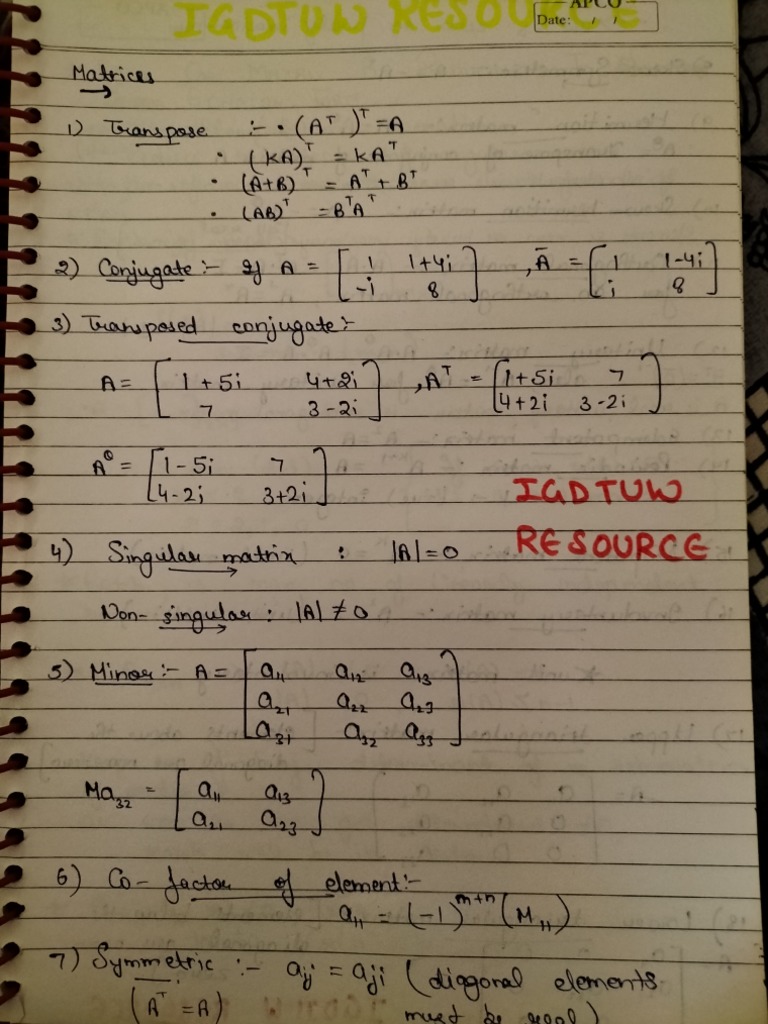 IGDTUW RESOURCE
APCO
Date: / /
Matrices
1) Transpose :- • (Aᵀ)ᵀ = A
• (kA)ᵀ = kAᵀ
• (A+B)ᵀ = Aᵀ + Bᵀ
• (AB)ᵀ = BᵀAᵀ
2) Conjugate :- If A = [ 1 1+4i ; -i 8 ] , Ā = [ 1 1-4i ; i 8 ]
3) Transposed conjugate :-
A = [ 1+5i 4+2i ; 7 3-2i ] , Aᵀ = [ 1+5i 7 ; 4+2i 3-2i ]
A^θ = [ 1-5i 7 ; 4-2i 3+2i ]
IGDTUW
RESOURCE
4) Singular matrix : |A| = 0
Non-singular : |A| ≠ 0
5) Minor :- A = [ a₁₁ a₁₂ a₁₃ ; a₂₁ a₂₂ a₂₃ ; a₃₁ a₃₂ a₃₃ ]
Ma₃₂ = [ a₁₁ a₁₃ ; a₂₁ a₂₃ ]
6) Co-factor of element :-
a₁₁ = (-1)^(m+n) (M₁₁)
7) Symmetric :- aᵢⱼ = aⱼᵢ (diagonal elements
(Aᵀ = A) must be real)